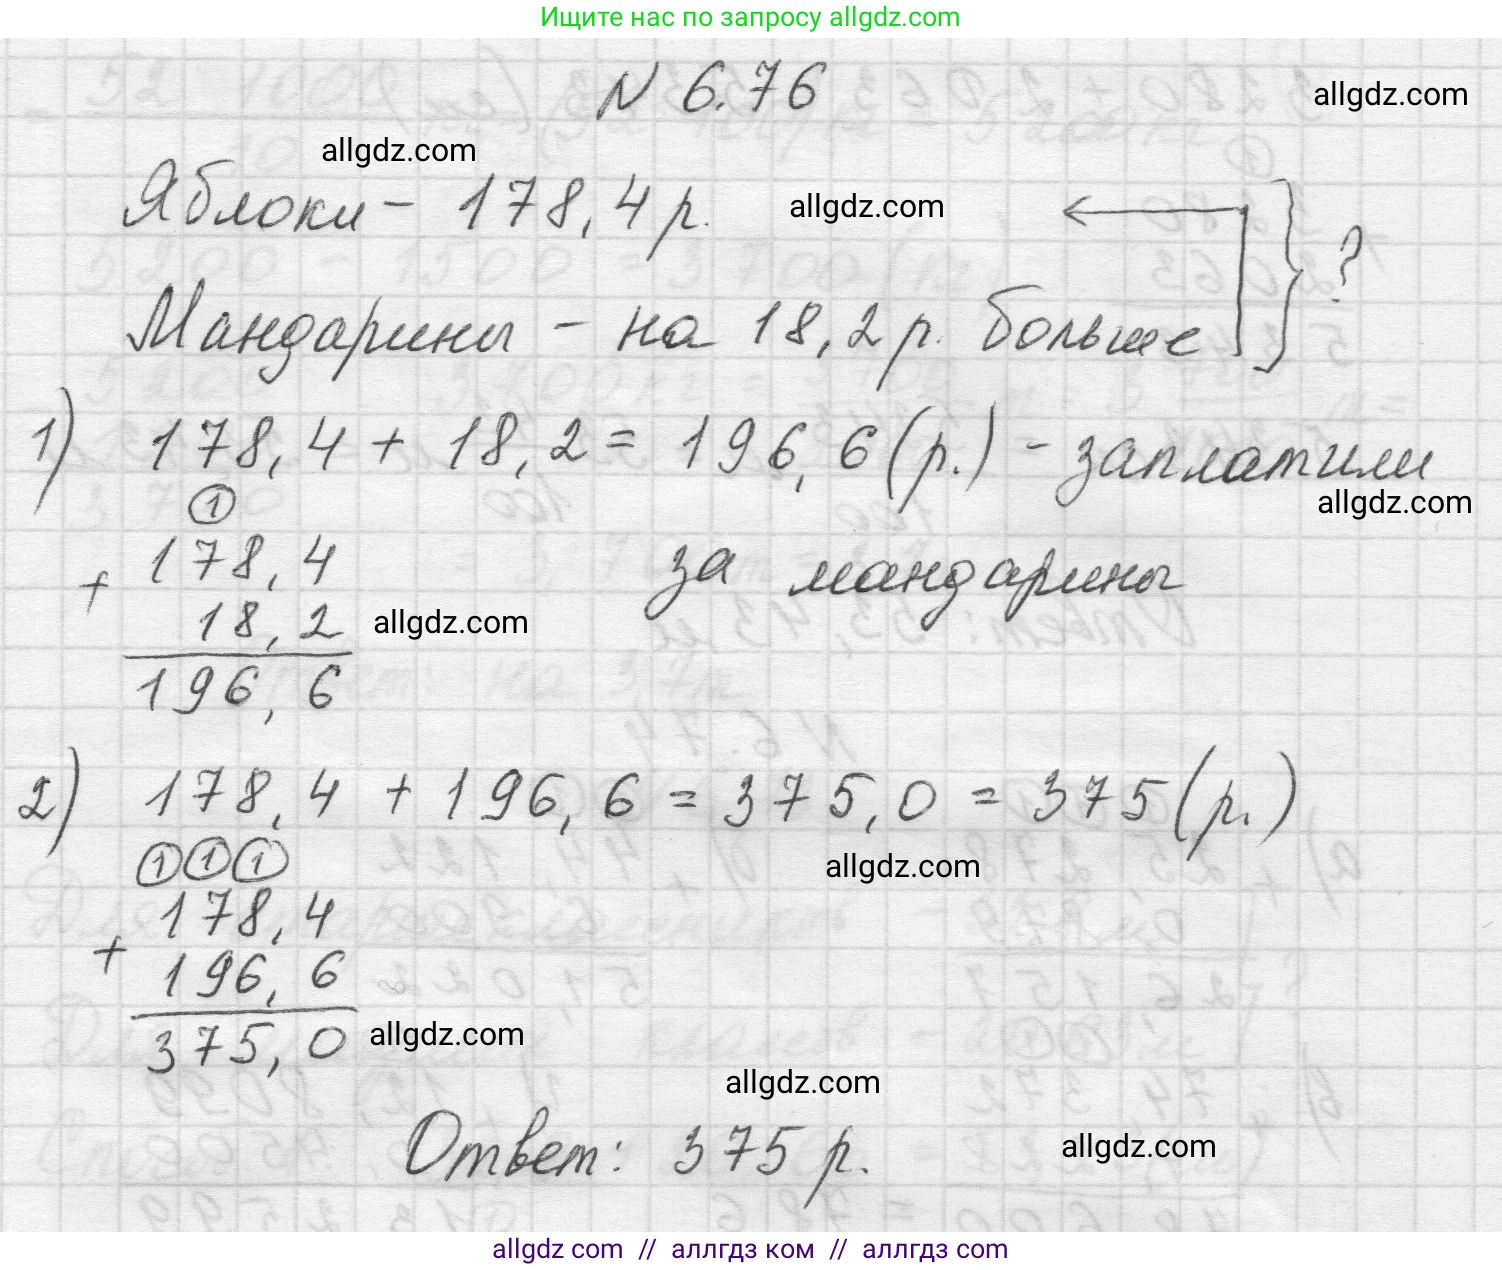 Ищите нас по запросу allgdz.com
N 6.76
allgdz.com
allgdz.com
Яблоки - 178,4 р.
allgdz.com
?
Мандарины - на 18,2 р. больше
1) 178,4 + 18,2 = 196,6 (р.) - заплатили
allgdz.com
за мандарины
1
178,4
+
18,2
allgdz.com
196,6
2) 178,4 + 196,6 = 375,0 = 375 (р.)
allgdz.com
1 1 1
178,4
+
196,6
375,0
allgdz.com
allgdz.com
Ответ: 375 р.
allgdz.com
allgdz com // аллгдз ком // аллгдз com